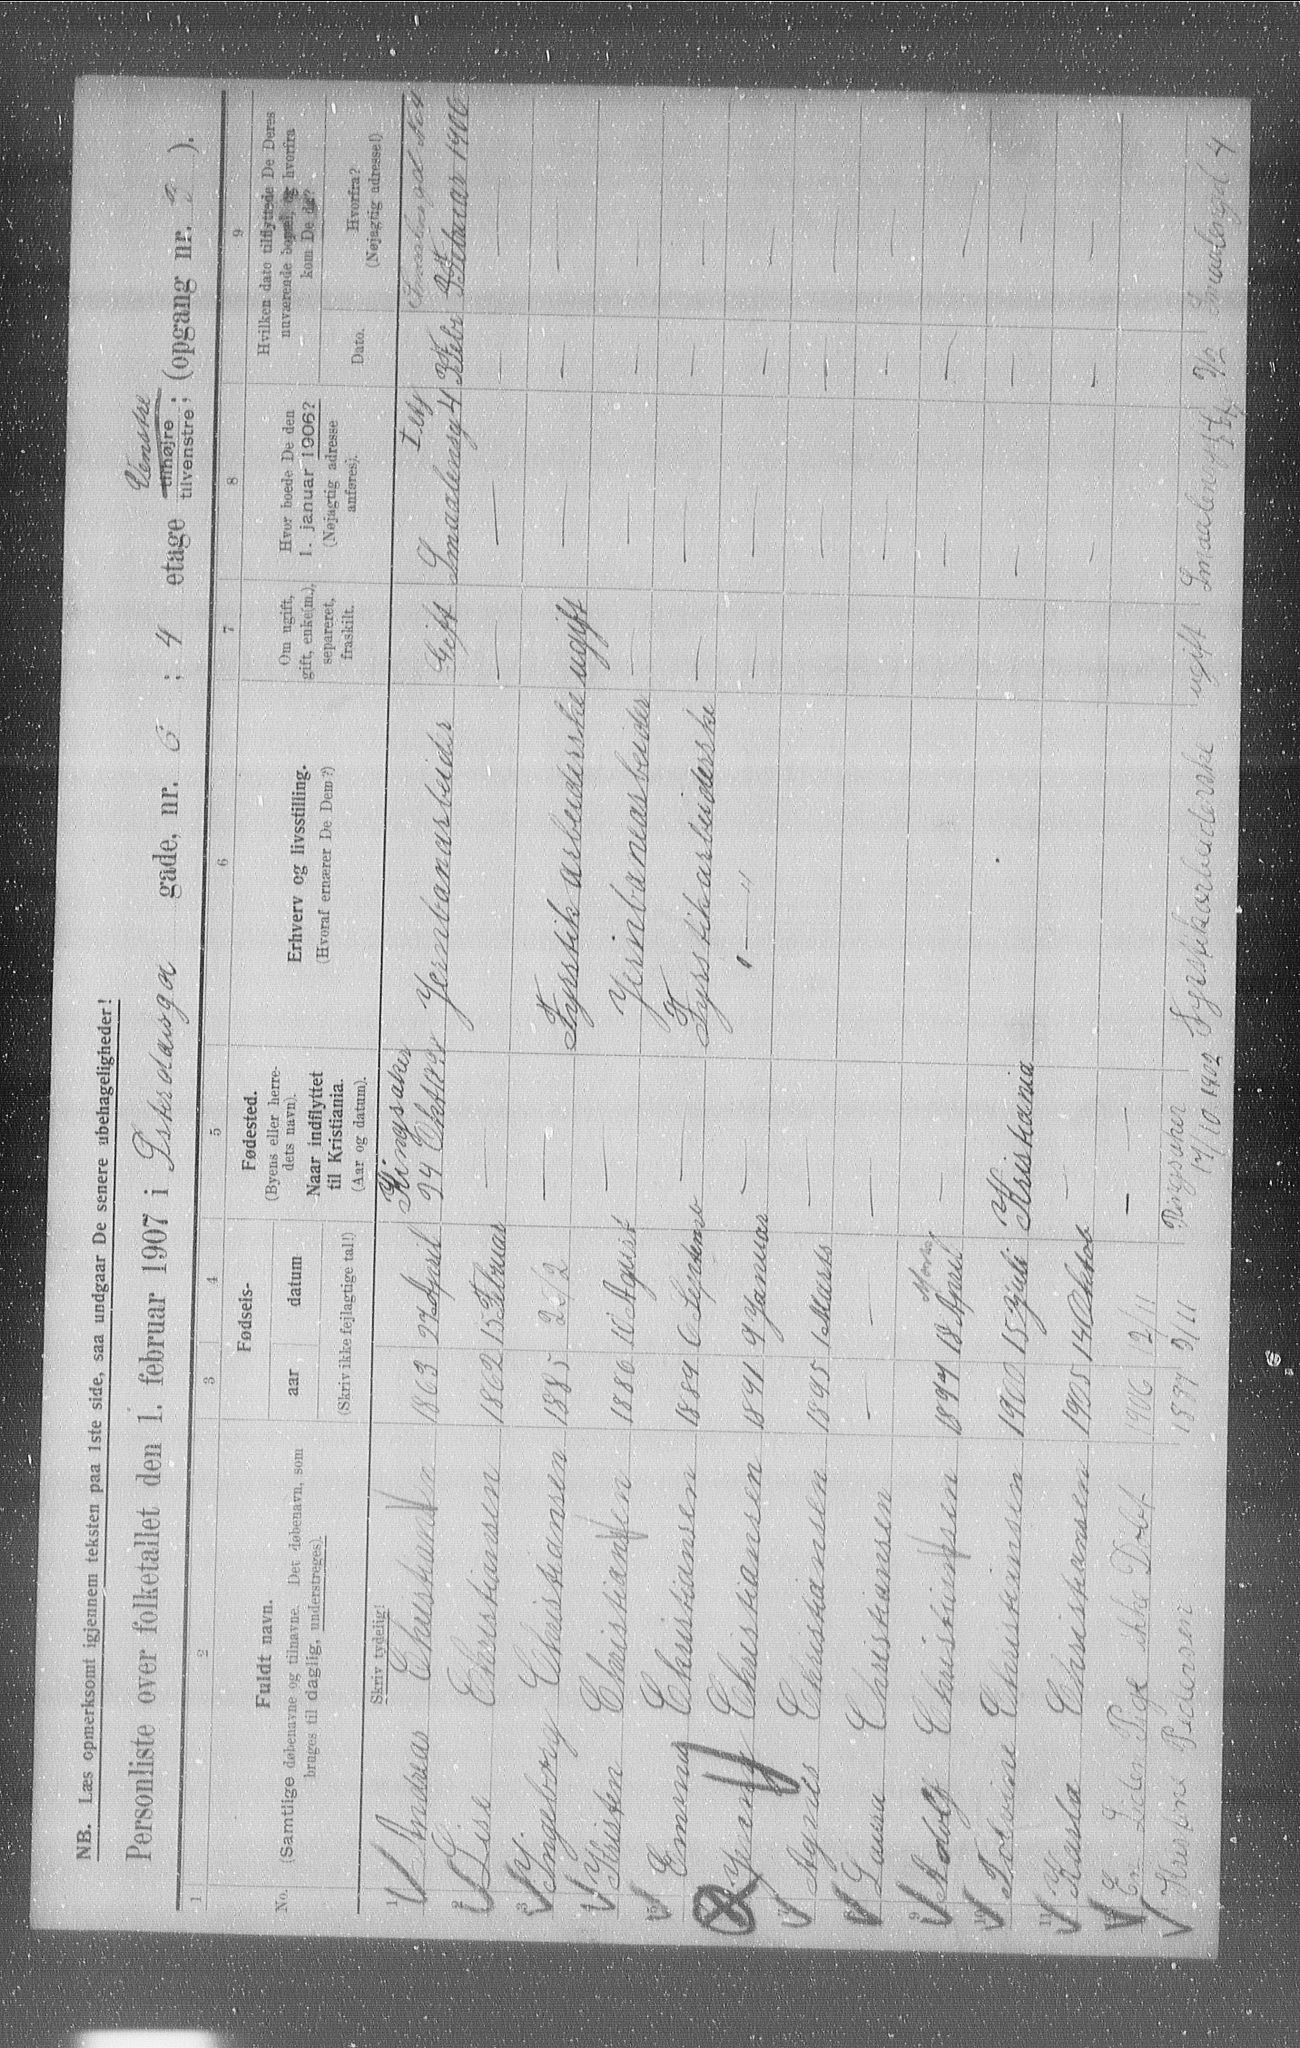 NB. Læs opmerksomt igjennem teksten paa 1ste side, saa undgaar De senere ubehageligheder!
Personliste over folketallet den 1. februar 1907 i Østerdalsga gade, nr. 6 ; 4 etage tilhøjre tilvenstre; Venstre (opgang nr. 2 ).
1 2 3 4 5 6 7 8 9
No.
Fuldt navn.
(Samtlige døbenavne og tilnavne. Det døbenavn, som
bruges til daglig, understreges).
Fødsels-
aar
datum
(Skriv ikke fejlagtige tal!)
Fødested.
(Byens eller herre-
dets navn).
Naar indflyttet
til Kristiania.
(Aar og datum).
Erhverv og livsstilling.
(Hvoraf ernærer De Dem?)
Om ugift,
gift, enke(m.),
separeret,
fraskilt.
Hvor boede De den
1. januar 1906?
(Nøjagtig adresse
anføres).
Hvilken dato tilflyttede De Deres
nuværende bopæl, og hvorfra
kom De da?
Dato.
Hvorfra?
(Nøjagtig adresse!)
Skriv tydelig!
1 Andreas Christiansen 1863 24 April Ringsaker 24 Oktober Jernbanarbeider Gift Smaalensg 4 Febr Februar 1906
2 Lise Christiansen 1862 15 Februar — — — — —
3 Ingeborg Christiansen 1885 25/2 — Fyrstikarbeiderske ugift — — —
4 Kristen Christiansen 1886 16 August — Jernbanearbeider — — — —
5 Emma Christiansen 1889 6 Septemb — Fyrstikarbeiderske — — — —
6 Jenny Christiansen 1891 9 Januar — — " — — — —
7 Agnes Christiansen 1895 1 Mars — — — —
8 Luisa Christiansen — — — — — —
9 Adolf Christiansen 1897 18 April — — — —
10 Tolvine Christiansen 1900 15 Juli Kristiania — — —
11 Karla Christiansen 1905 14 Oktob — — — —
12 En Liden Pige ikke Døbt 1906 12/11 — —
Kristine Pedersen 1887 3/11 Ringsaker 17/10 1902 Fyrstikarbeiderske ugift Smaalensg 4 Smaalensgd 4